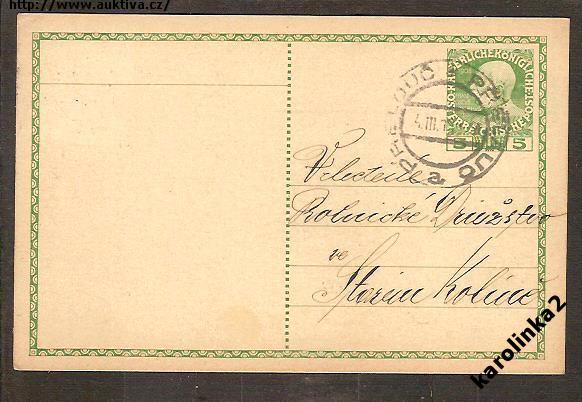 http://www.auktiva.cz/
KAISERLICHE KÖNIGLICHE
ÖSTERREICHISCHE POST
5 5
PŘELOUČ
4.III.
a
Velectěné
Rolnické Družstvo
ve
Starém Kolíně
karolinka2